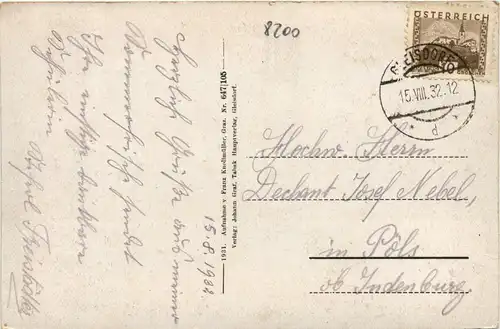 8200
ÖSTERREICH
GLEISDORF
15.VIII.32.12
d
Herzlich Grüße aus meiner
Sommerfrische sendet
Ihr
15.8.1932.
1931. Aufnahme v. Franz Knollmüller, Graz. Nr. 647|105
Verlag: Johann Graf, Tabak Hauptverlag, Gleisdorf.
Hochw. Herrn
Dechant Josef Nebel,
in Pöls
ob Judenburg